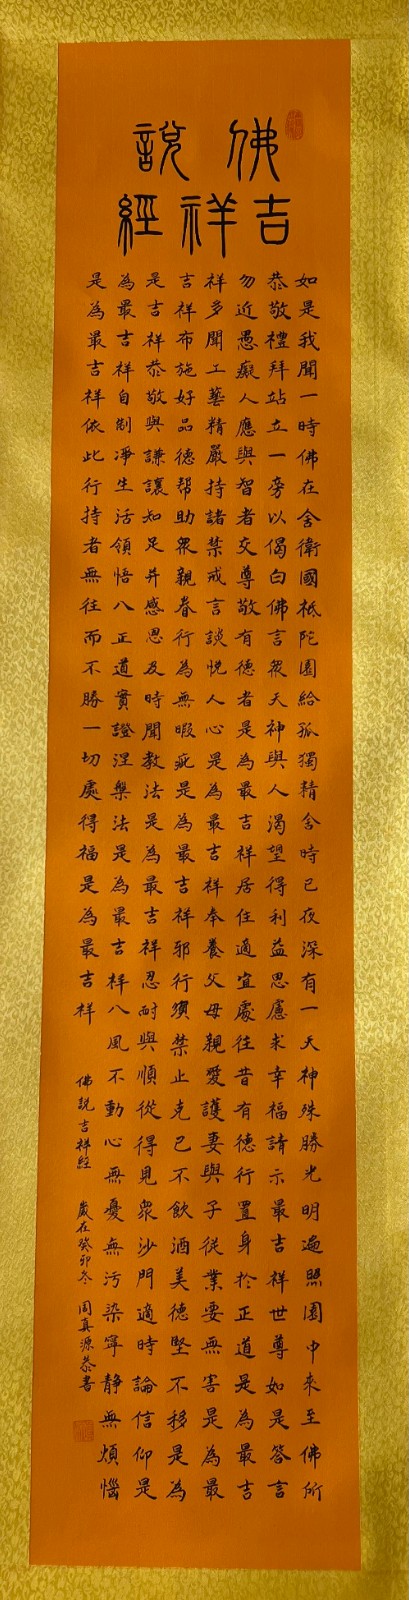 佛說
吉祥經
如是我聞一時佛在舍衛國祇陀園給孤獨精舍時已夜深有一天神殊勝光明遍照園中來至佛所
恭敬禮拜站立一旁以偈白佛言眾天神與人渴望得利益思慮求幸福請示最吉祥世尊如是答言
勿近愚癡人應與智者交尊敬有德者是為最吉祥居住適宜處往昔有德行置身於正道是為最吉
祥多聞工藝精嚴持諸禁戒言談悅人心是為最吉祥奉養父母親愛護妻與子從業要無害是為最
吉祥布施好品德幫助眾親眷行為無暇疵是為最吉祥邪行須禁止克己不飲酒美德堅不移是為
是吉祥恭敬與謙讓知足并感恩及時聞教法是為最吉祥忍耐與順從得見眾沙門適時論信仰是
為最吉祥自制淨生活領悟八正道實證涅槃法是為最吉祥八風不動心無憂無污染寧靜無煩惱
是為最吉祥依此行持者無往而不勝一切處得福是為最吉祥
佛說吉祥經 歲在癸卯冬 周真源恭書